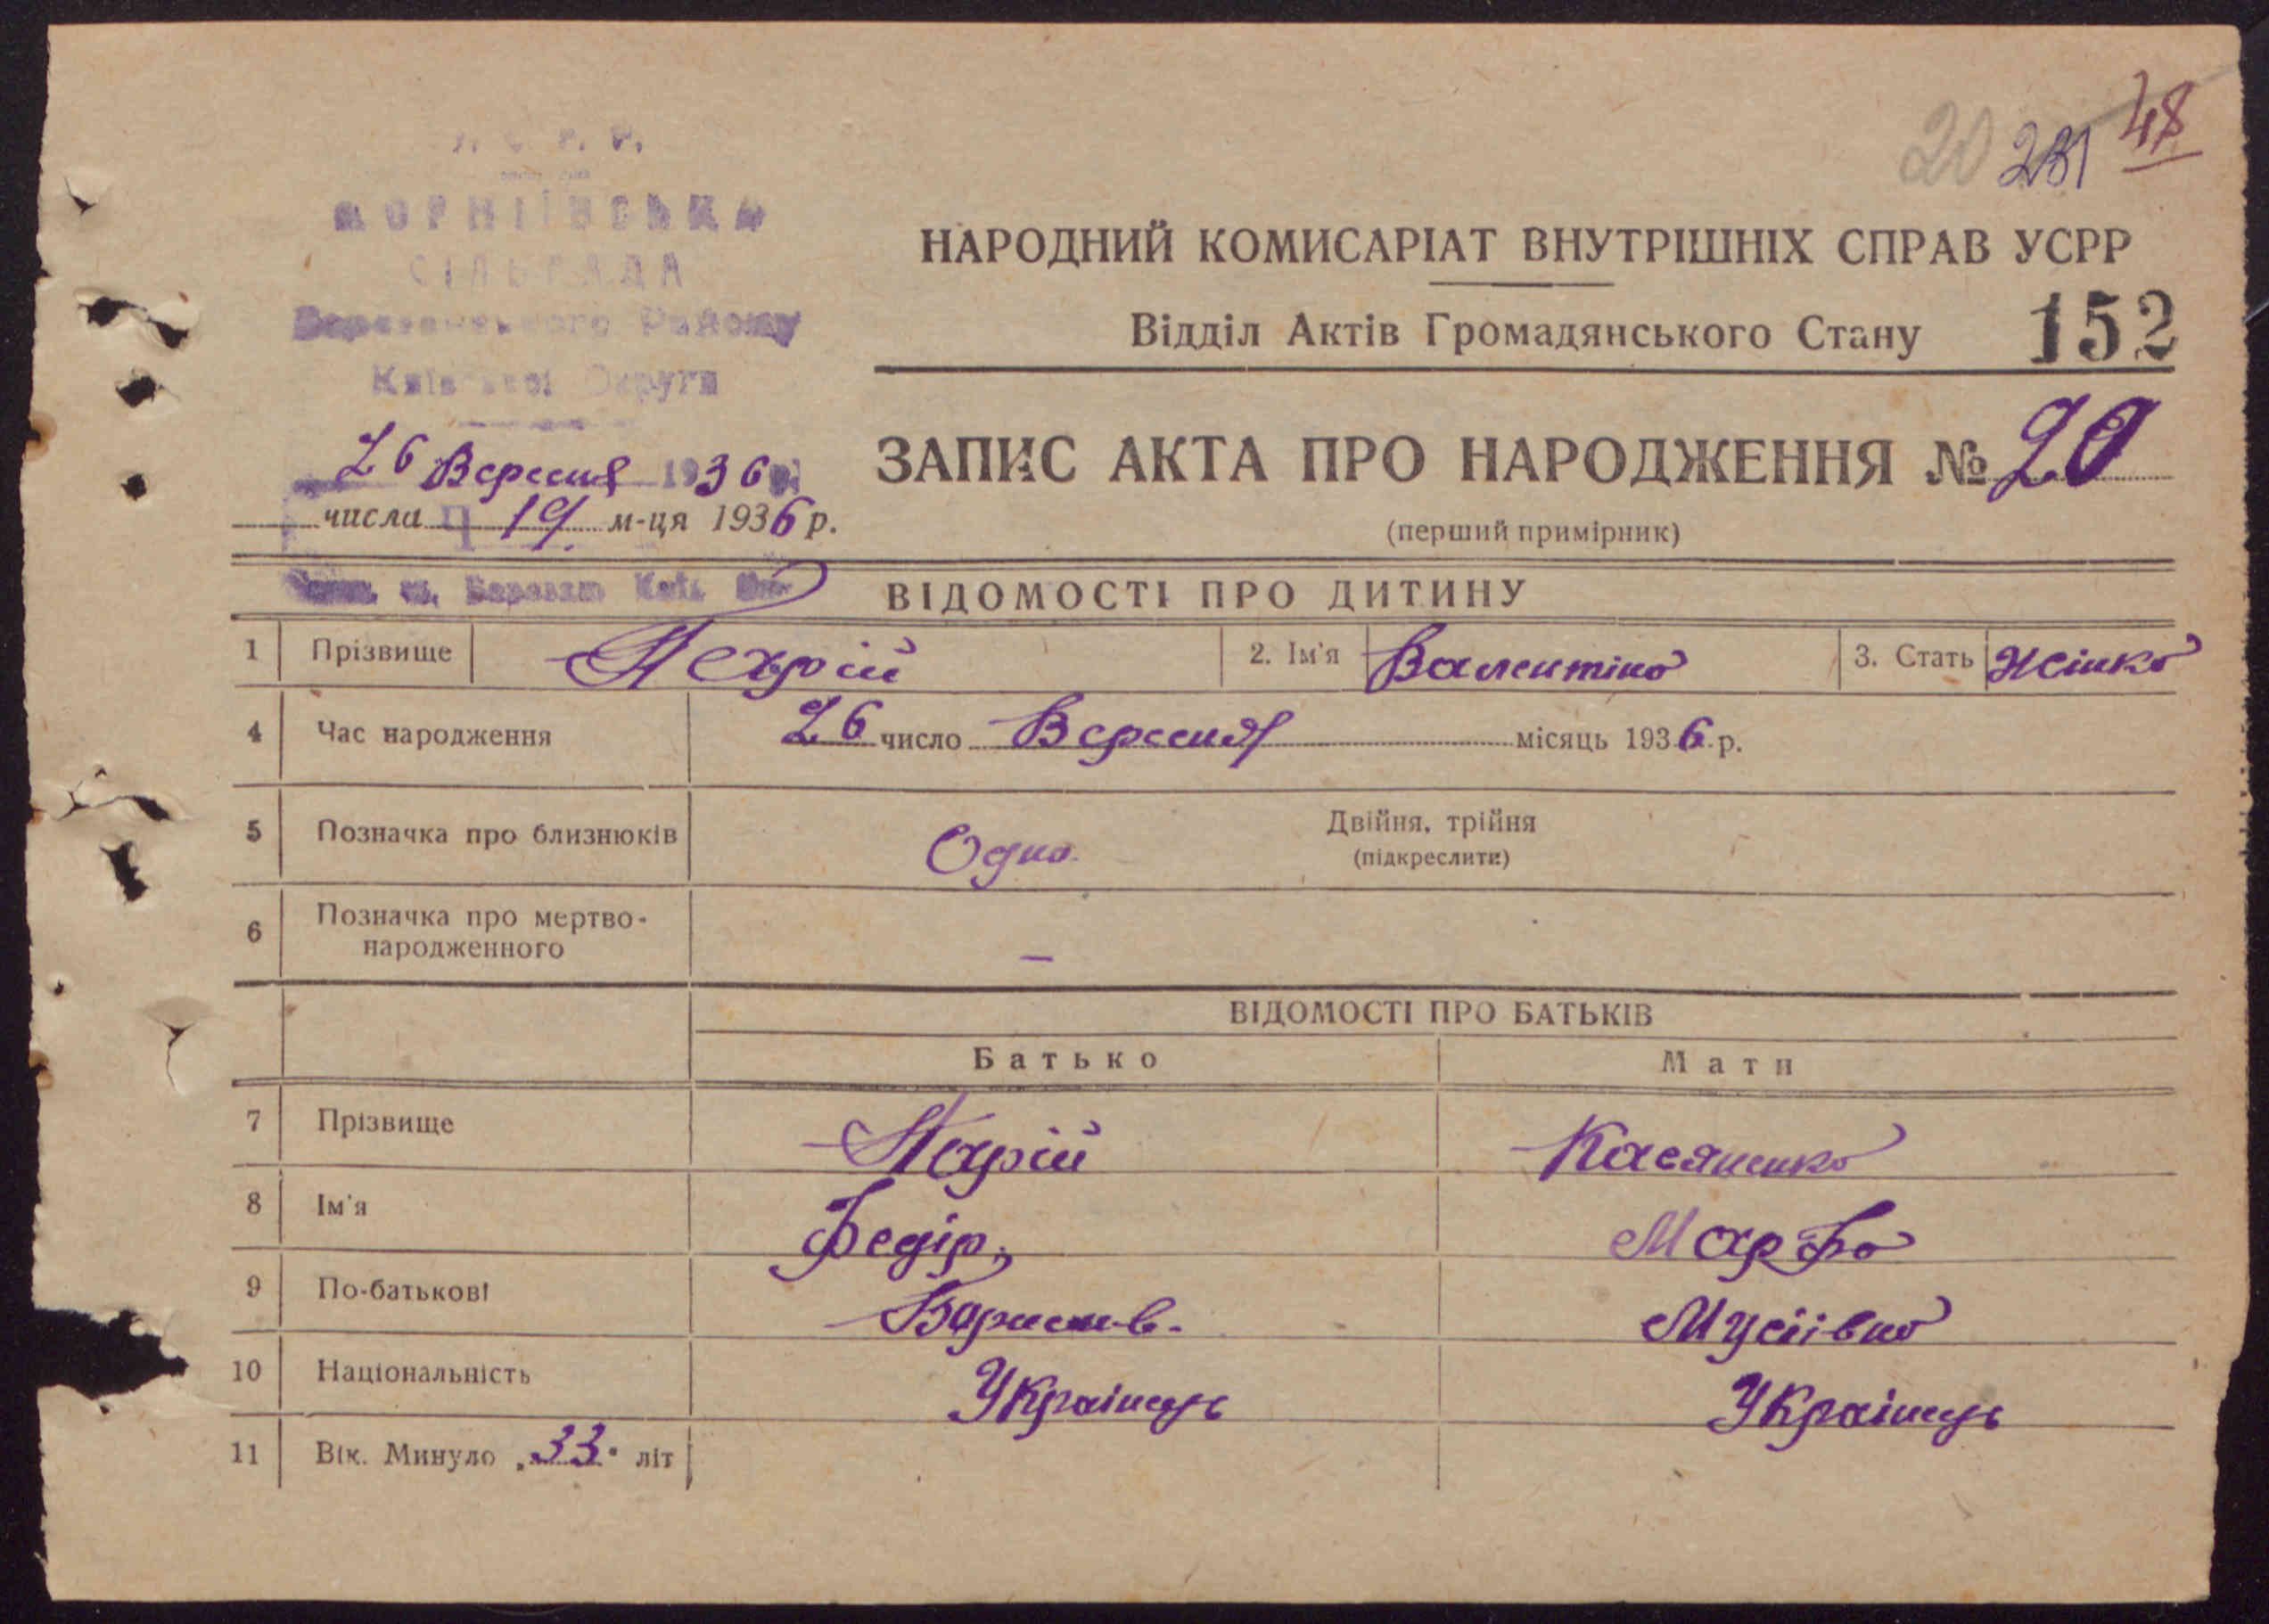 20 231 48
У. С. Р. Р.
КОРНІЇВСЬКА
СІЛЬРАДА
Району
Округи
НАРОДНИЙ КОМИСАРІАТ ВНУТРІШНІХ СПРАВ УСРР
Відділ Актів Громадянського Стану 152
26 Вересня 1936 р.
числа 19 м-ця 1936 р.
ЗАПИС АКТА ПРО НАРОДЖЕННЯ № 20
(перший примірник)
ВІДОМОСТІ ПРО ДИТИНУ
1 Прізвище Нехрій 2. Ім'я Валентіна 3. Стать Жінка
4 Час народження 26 число Вересня місяць 1936 р.
5 Позначка про близнюків Одна Двійня, трійня
(підкреслити)
6 Позначка про мертво-
народженного —
ВІДОМОСТІ ПРО БАТЬКІВ
Батько Мати
7 Прізвище Нехрій Касяненко
8 Ім'я Федір Марфа
9 По-батькові Мусіівна
10 Національність Українць Українць
11 Вік. Минуло „33" літ